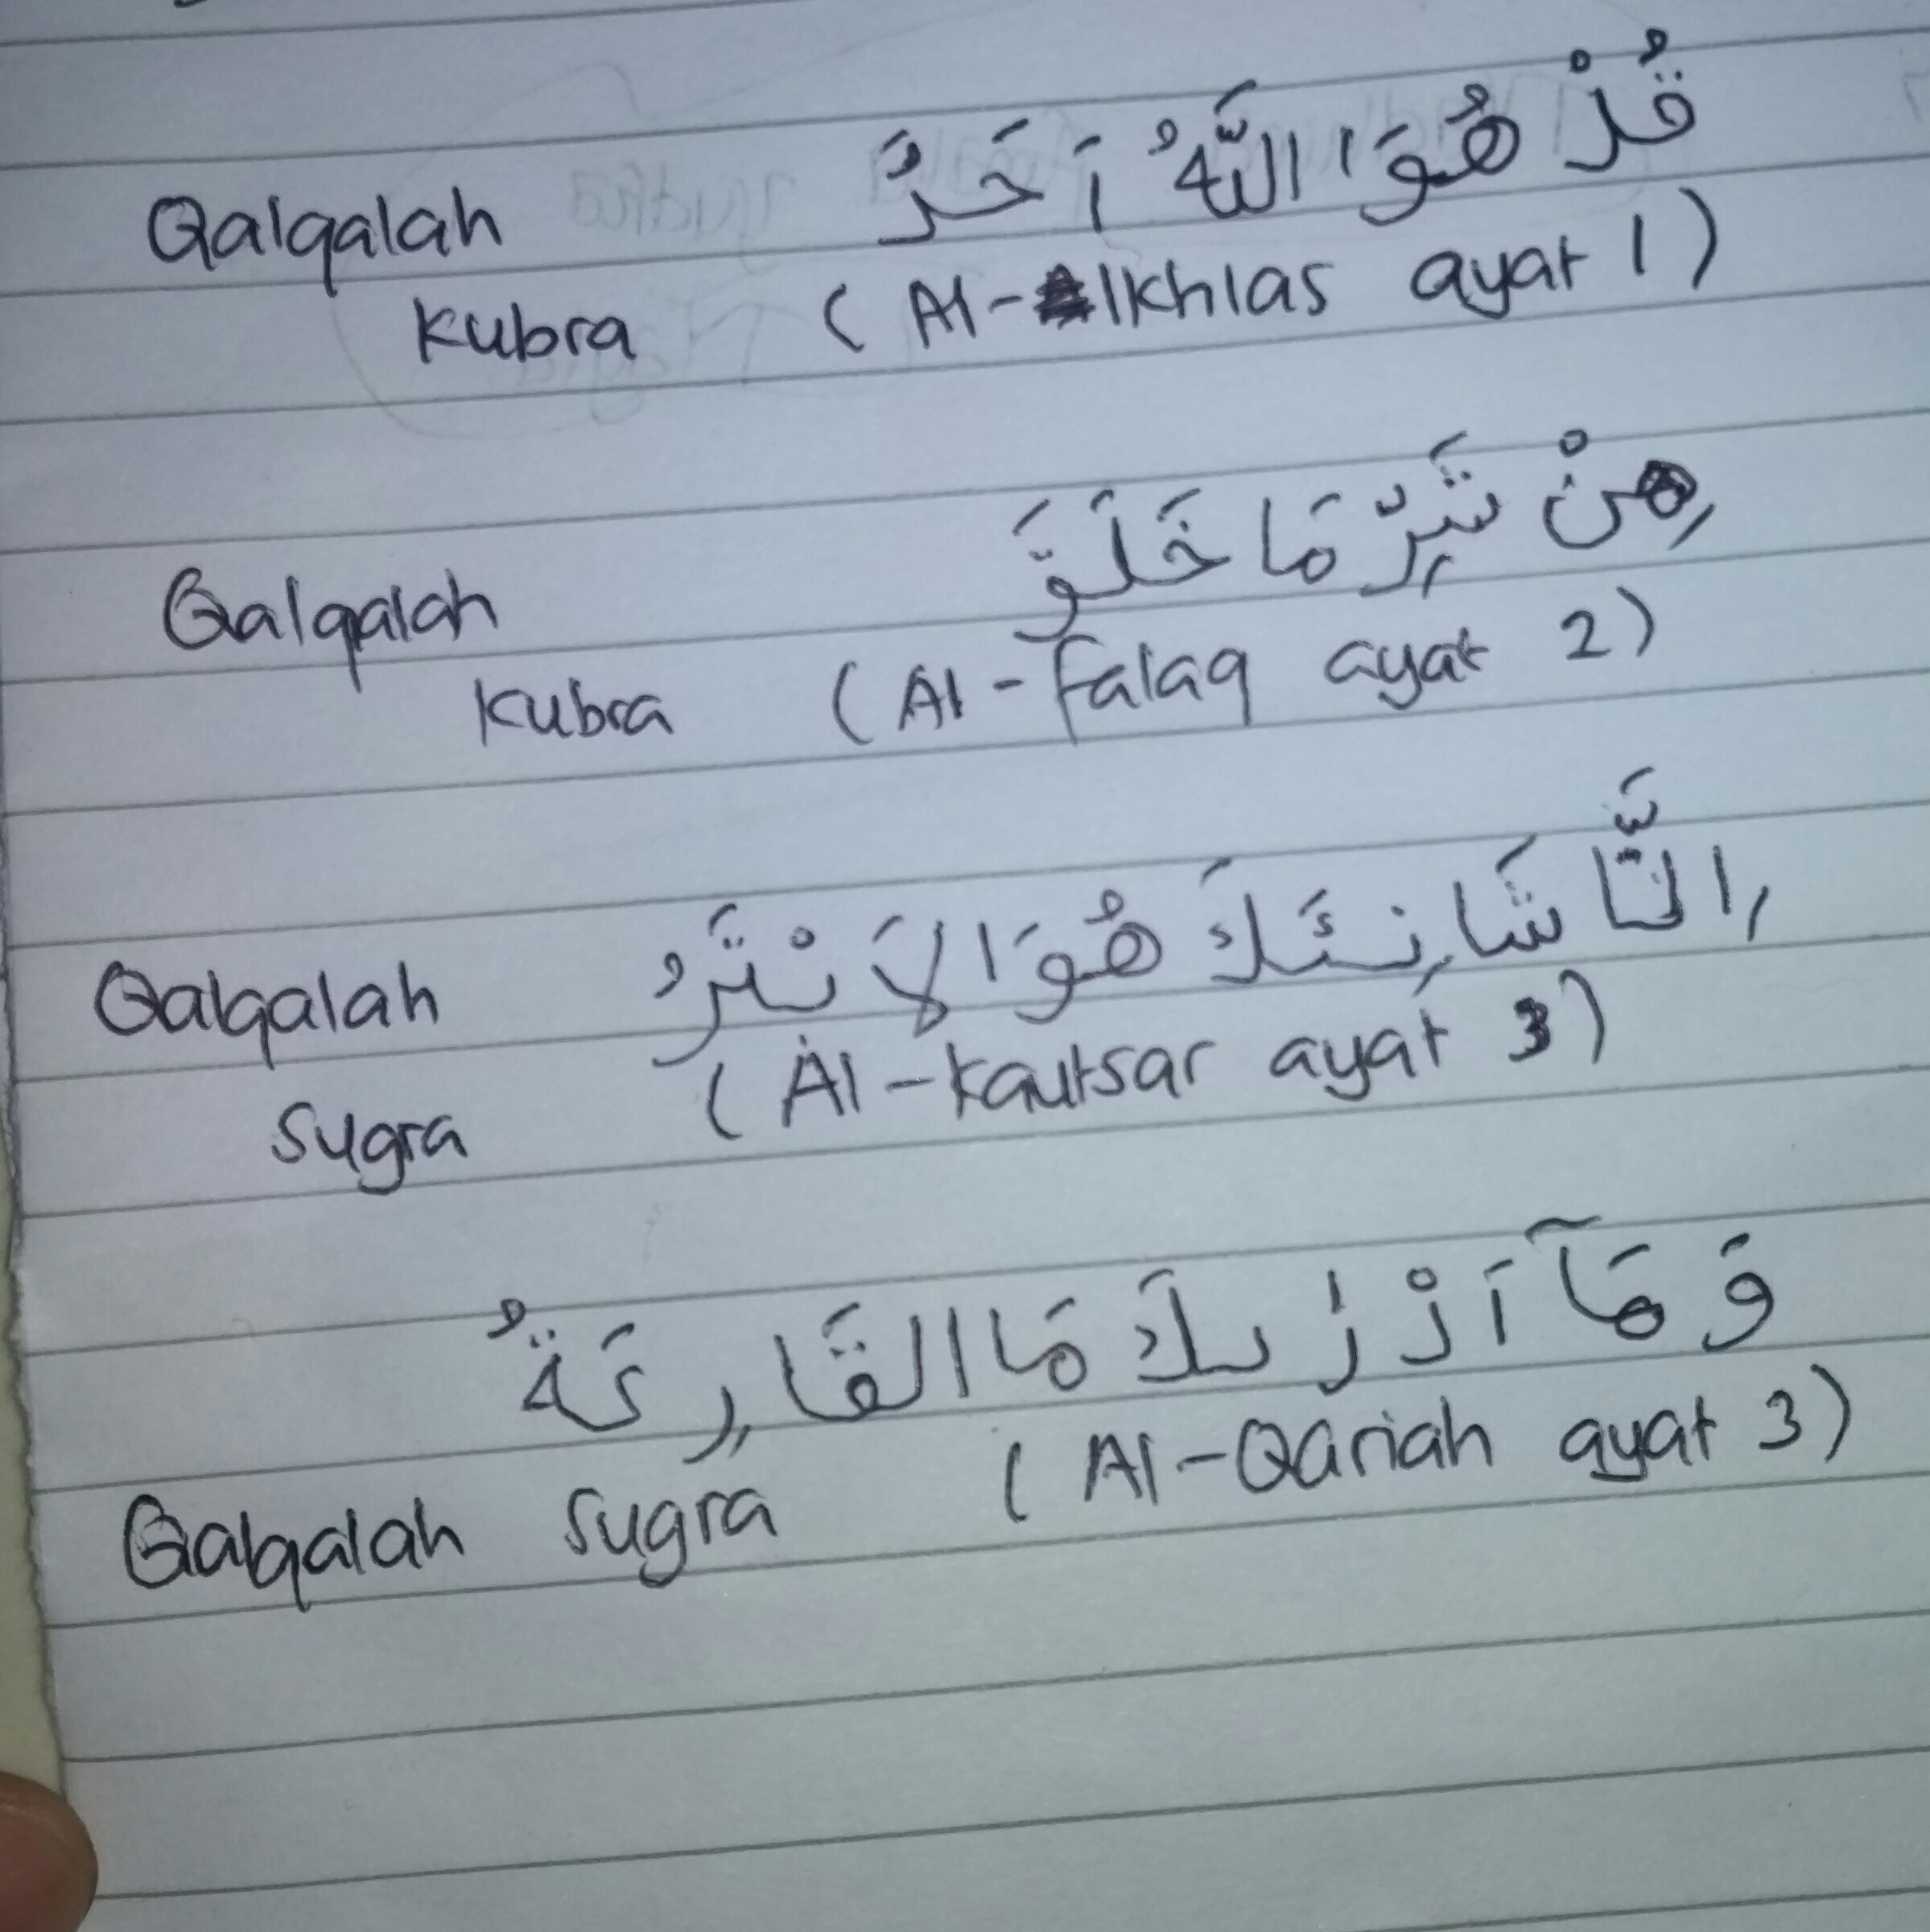 قُلْ هُوَ اللّٰهُ اَحَدٌ
Qalqalah
Kubra ( Al-Ikhlas ayat 1 )
مِنْ شَرِّ مَا خَلَقَ
Qalqalah
Kubra ( Al - falaq ayat 2 )
اِنَّ شَانِئَكَ هُوَ الْاَبْتَرُ
Qalqalah
Sugra ( Al - kautsar ayat 3 )
وَ مَآ اَدْرٰىكَ مَا الْقَارِعَةُ
Qalqalah Sugra ( Al - Qariah ayat 3 )